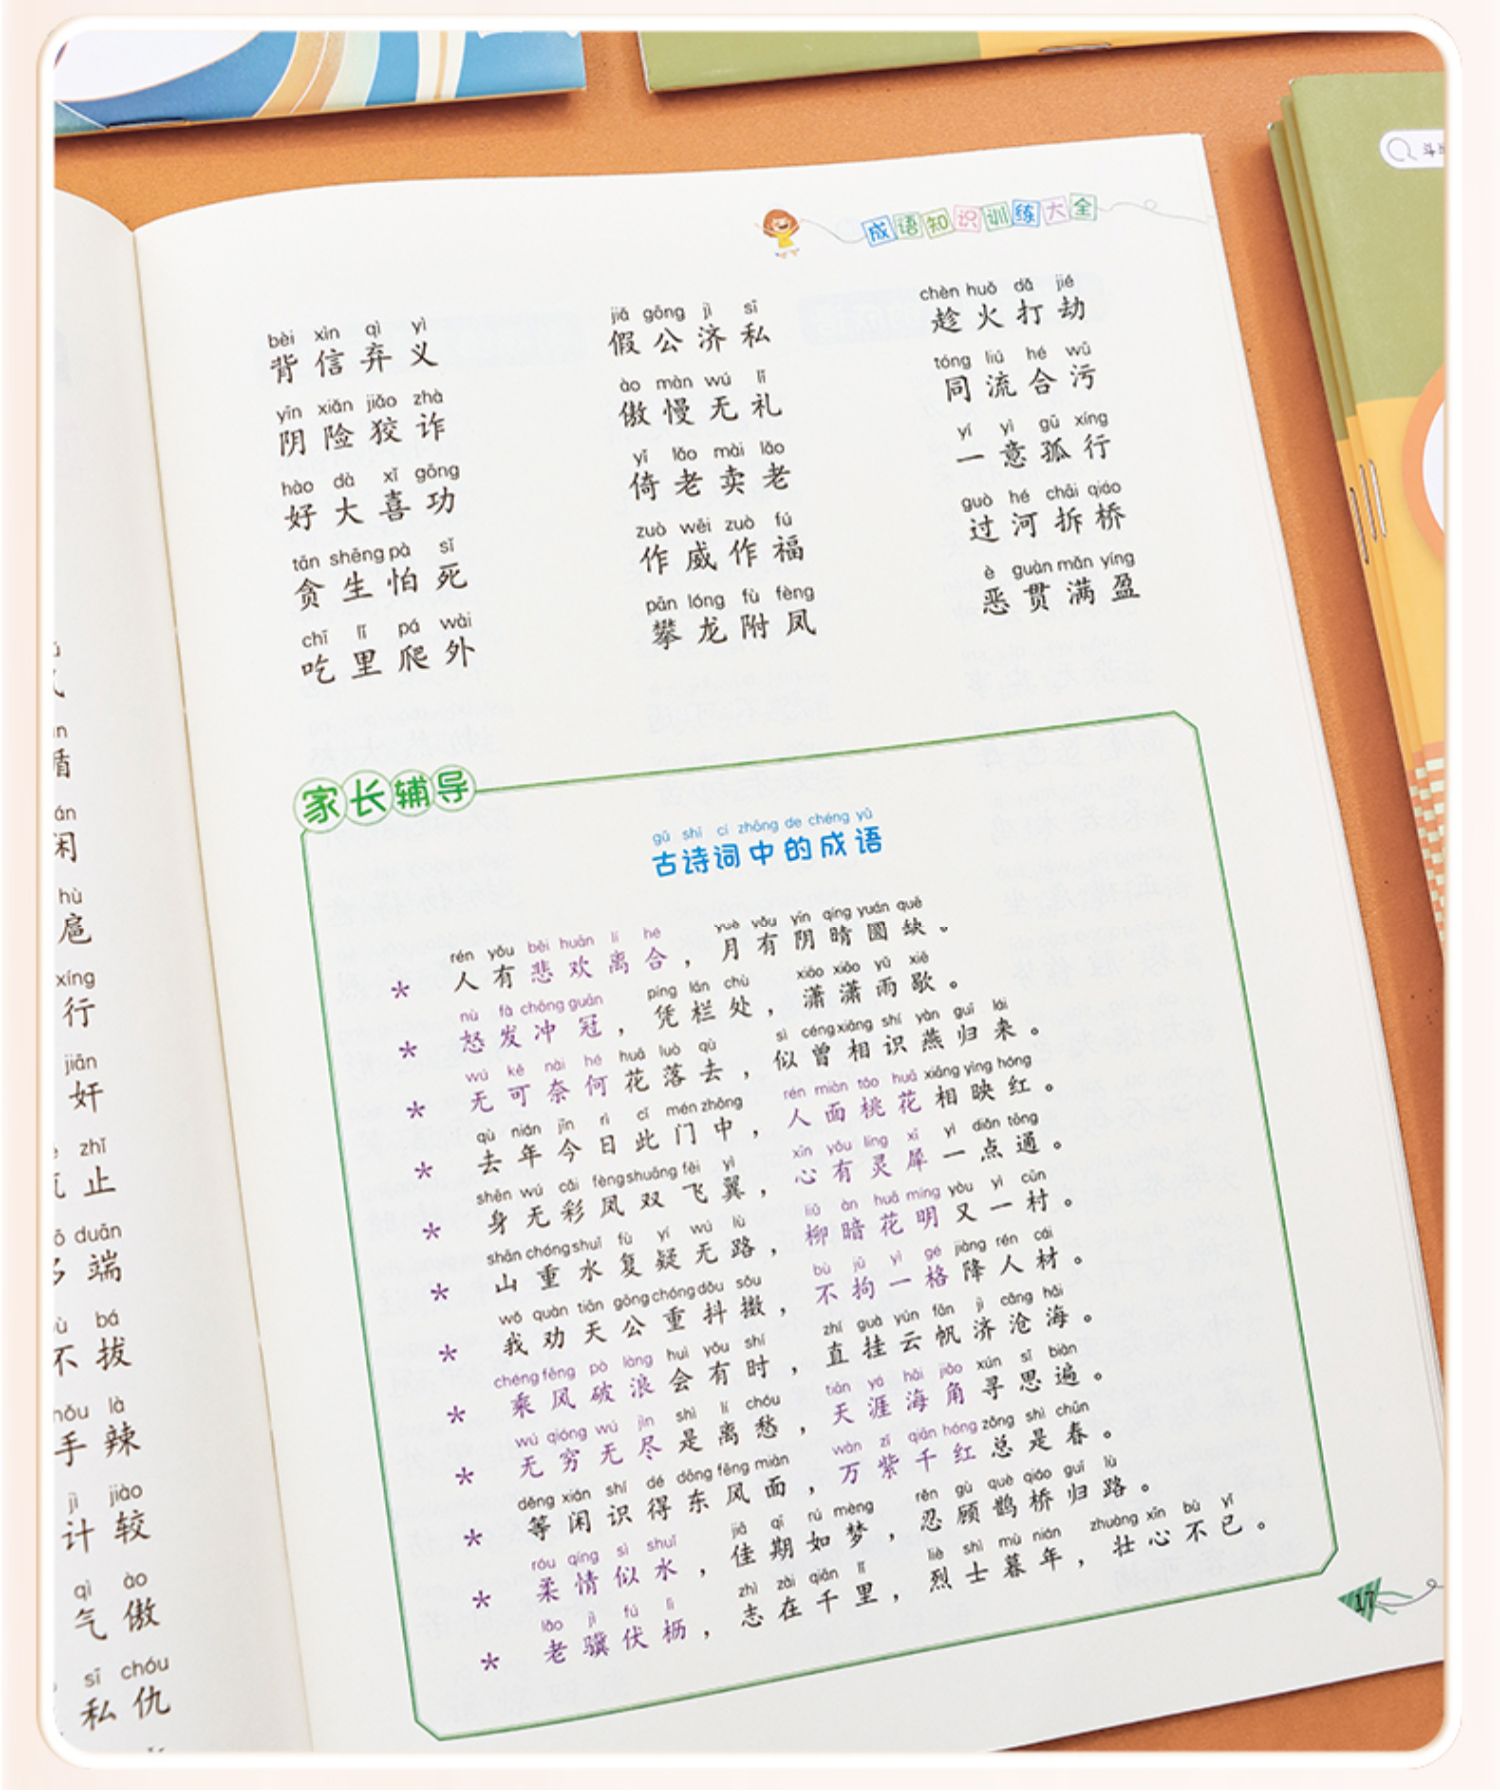 成语知识训练大全
bèi xìn qì yì
背信弃义
jiǎ gōng jì sī
假公济私
chèn huǒ dǎ jié
趁火打劫
yīn xiǎn jiǎo zhà
阴险狡诈
ào màn wú lǐ
傲慢无礼
tóng liú hé wū
同流合污
hào dà xǐ gōng
好大喜功
yǐ lǎo mài lǎo
倚老卖老
yí yì gū xíng
一意孤行
tān shēng pà sǐ
贪生怕死
zuò wēi zuò fú
作威作福
guò hé chāi qiáo
过河拆桥
chī lǐ pá wài
吃里爬外
pān lóng fù fèng
攀龙附凤
è guàn mǎn yíng
恶贯满盈
家长辅导
gǔ shī cí zhōng de chéng yǔ
古诗词中的成语
rén yǒu bēi huān lí hé yuè yǒu yīn qíng yuán quē
* 人有悲欢离合，月有阴晴圆缺。
nù fà chōng guān píng lán chù xiāo xiāo yǔ xiē
* 怒发冲冠，凭栏处，潇潇雨歇。
wú kě nài hé huā luò qù sì céng xiāng shí yàn guī lái
* 无可奈何花落去，似曾相识燕归来。
qù nián jīn rì cǐ mén zhōng rén miàn táo huā xiāng yìng hóng
* 去年今日此门中，人面桃花相映红。
shēn wú cǎi fèng shuāng fēi yì xīn yǒu líng xī yì diǎn tōng
* 身无彩凤双飞翼，心有灵犀一点通。
shān chóng shuǐ fù yí wú lù liǔ àn huā míng yòu yì cūn
* 山重水复疑无路，柳暗花明又一村。
wǒ quàn tiān gōng chóng dǒu sǒu bù jū yì gé jiàng rén cái
* 我劝天公重抖擞，不拘一格降人材。
chéng fēng pò làng huì yǒu shí zhí guà yún fān jì cāng hǎi
* 乘风破浪会有时，直挂云帆济沧海。
wú qióng wú jìn shì lí chóu tiān yá hǎi jiǎo xún sī biàn
* 无穷无尽是离愁，天涯海角寻思遍。
děng xián shí dé dōng fēng miàn wàn zǐ qiān hóng zǒng shì chūn
* 等闲识得东风面，万紫千红总是春。
róu qíng sì shuǐ jiā qī rú mèng rěn gù què qiáo guī lù
* 柔情似水，佳期如梦，忍顾鹊桥归路。
lǎo jì fú lì zhì zài qiān lǐ liè shì mù nián zhuàng xīn bù yǐ
* 老骥伏枥，志在千里，烈士暮年，壮心不已。
17
闲
hù
扈
xíng
行
jiān
奸
zhǐ
止
duān
端
bá
不拔
là
手辣
jì jiào
计较
qì ào
气傲
sī chóu
私仇